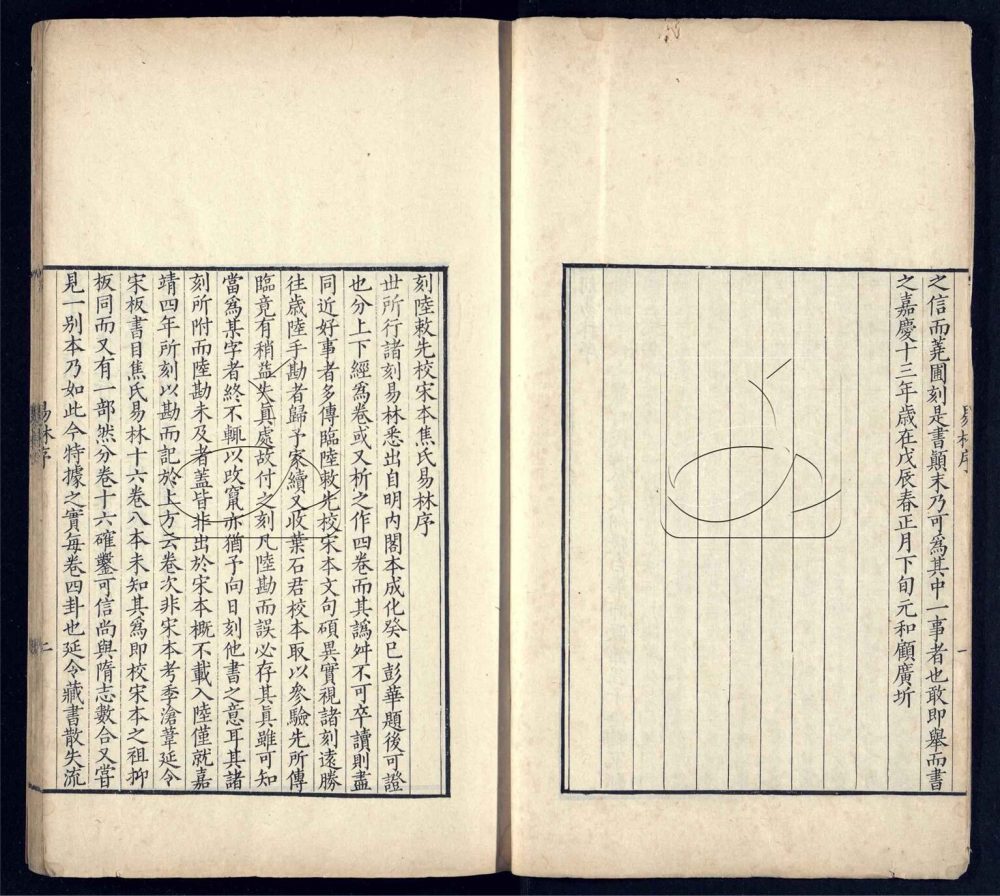 之信而蕘圃刻是書顛末乃可爲其中一事者也敢即舉而書
之嘉慶十三年歲在戊辰春正月下旬元和顧廣圻
易林序
一
刻陸敕先校宋本焦氏易林序
世所行諸刻易林悉出自明内閣本成化癸巳彭華題後可證
也分上下經爲卷或又析之作四卷而其譌舛不可卒讀則盡
同近好事者多傳臨陸敕先校宋本文句碩異實視諸刻遠勝
往歲陸手勘者歸予家續又收葉石君校本取以參驗先所傳
臨竟有稍益失眞處故付之刻凡陸勘而誤必存其眞雖可知
當爲某字者終不輒以改竄亦猶予向日刻他書之意耳其諸
刻所附而陸勘未及者蓋皆非出於宋本概不載入陸僅就嘉
靖四年所刻以勘而記於上方云卷次非宋本考季滄葦延令
宋板書目焦氏易林十六卷八本未知其爲即校宋本之祖抑
板同而又有一部然分卷十六確鑿可信尚與隋志數合又嘗
見一别本乃如此今特據之實每卷四卦也延令藏書散失流
易林序
二